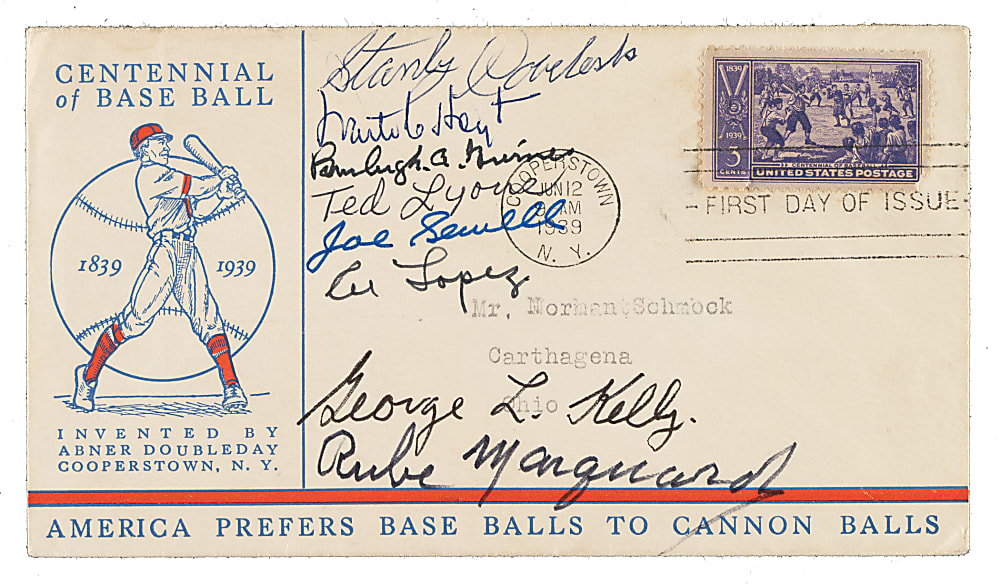 CENTENNIAL
of BASE BALL
1839
1939
INVENTED BY
ABNER DOUBLEDAY
COOPERSTOWN, N. Y.
Stanley Coveleski
Waite Hoyt
Burleigh A. Grimes
Ted Lyons
Joe Sewell
Al Lopez
George L. Kelly.
Rube Marquard
COOPERSTOWN
JUN 12
AM
1939
N. Y.
1839
1939
3
CENTS
CENTENNIAL OF BASEBALL
UNITED STATES POSTAGE
- FIRST DAY OF ISSUE -
Mr. Norman Schmock
Carthagena
Ohio
AMERICA PREFERS BASE BALLS TO CANNON BALLS